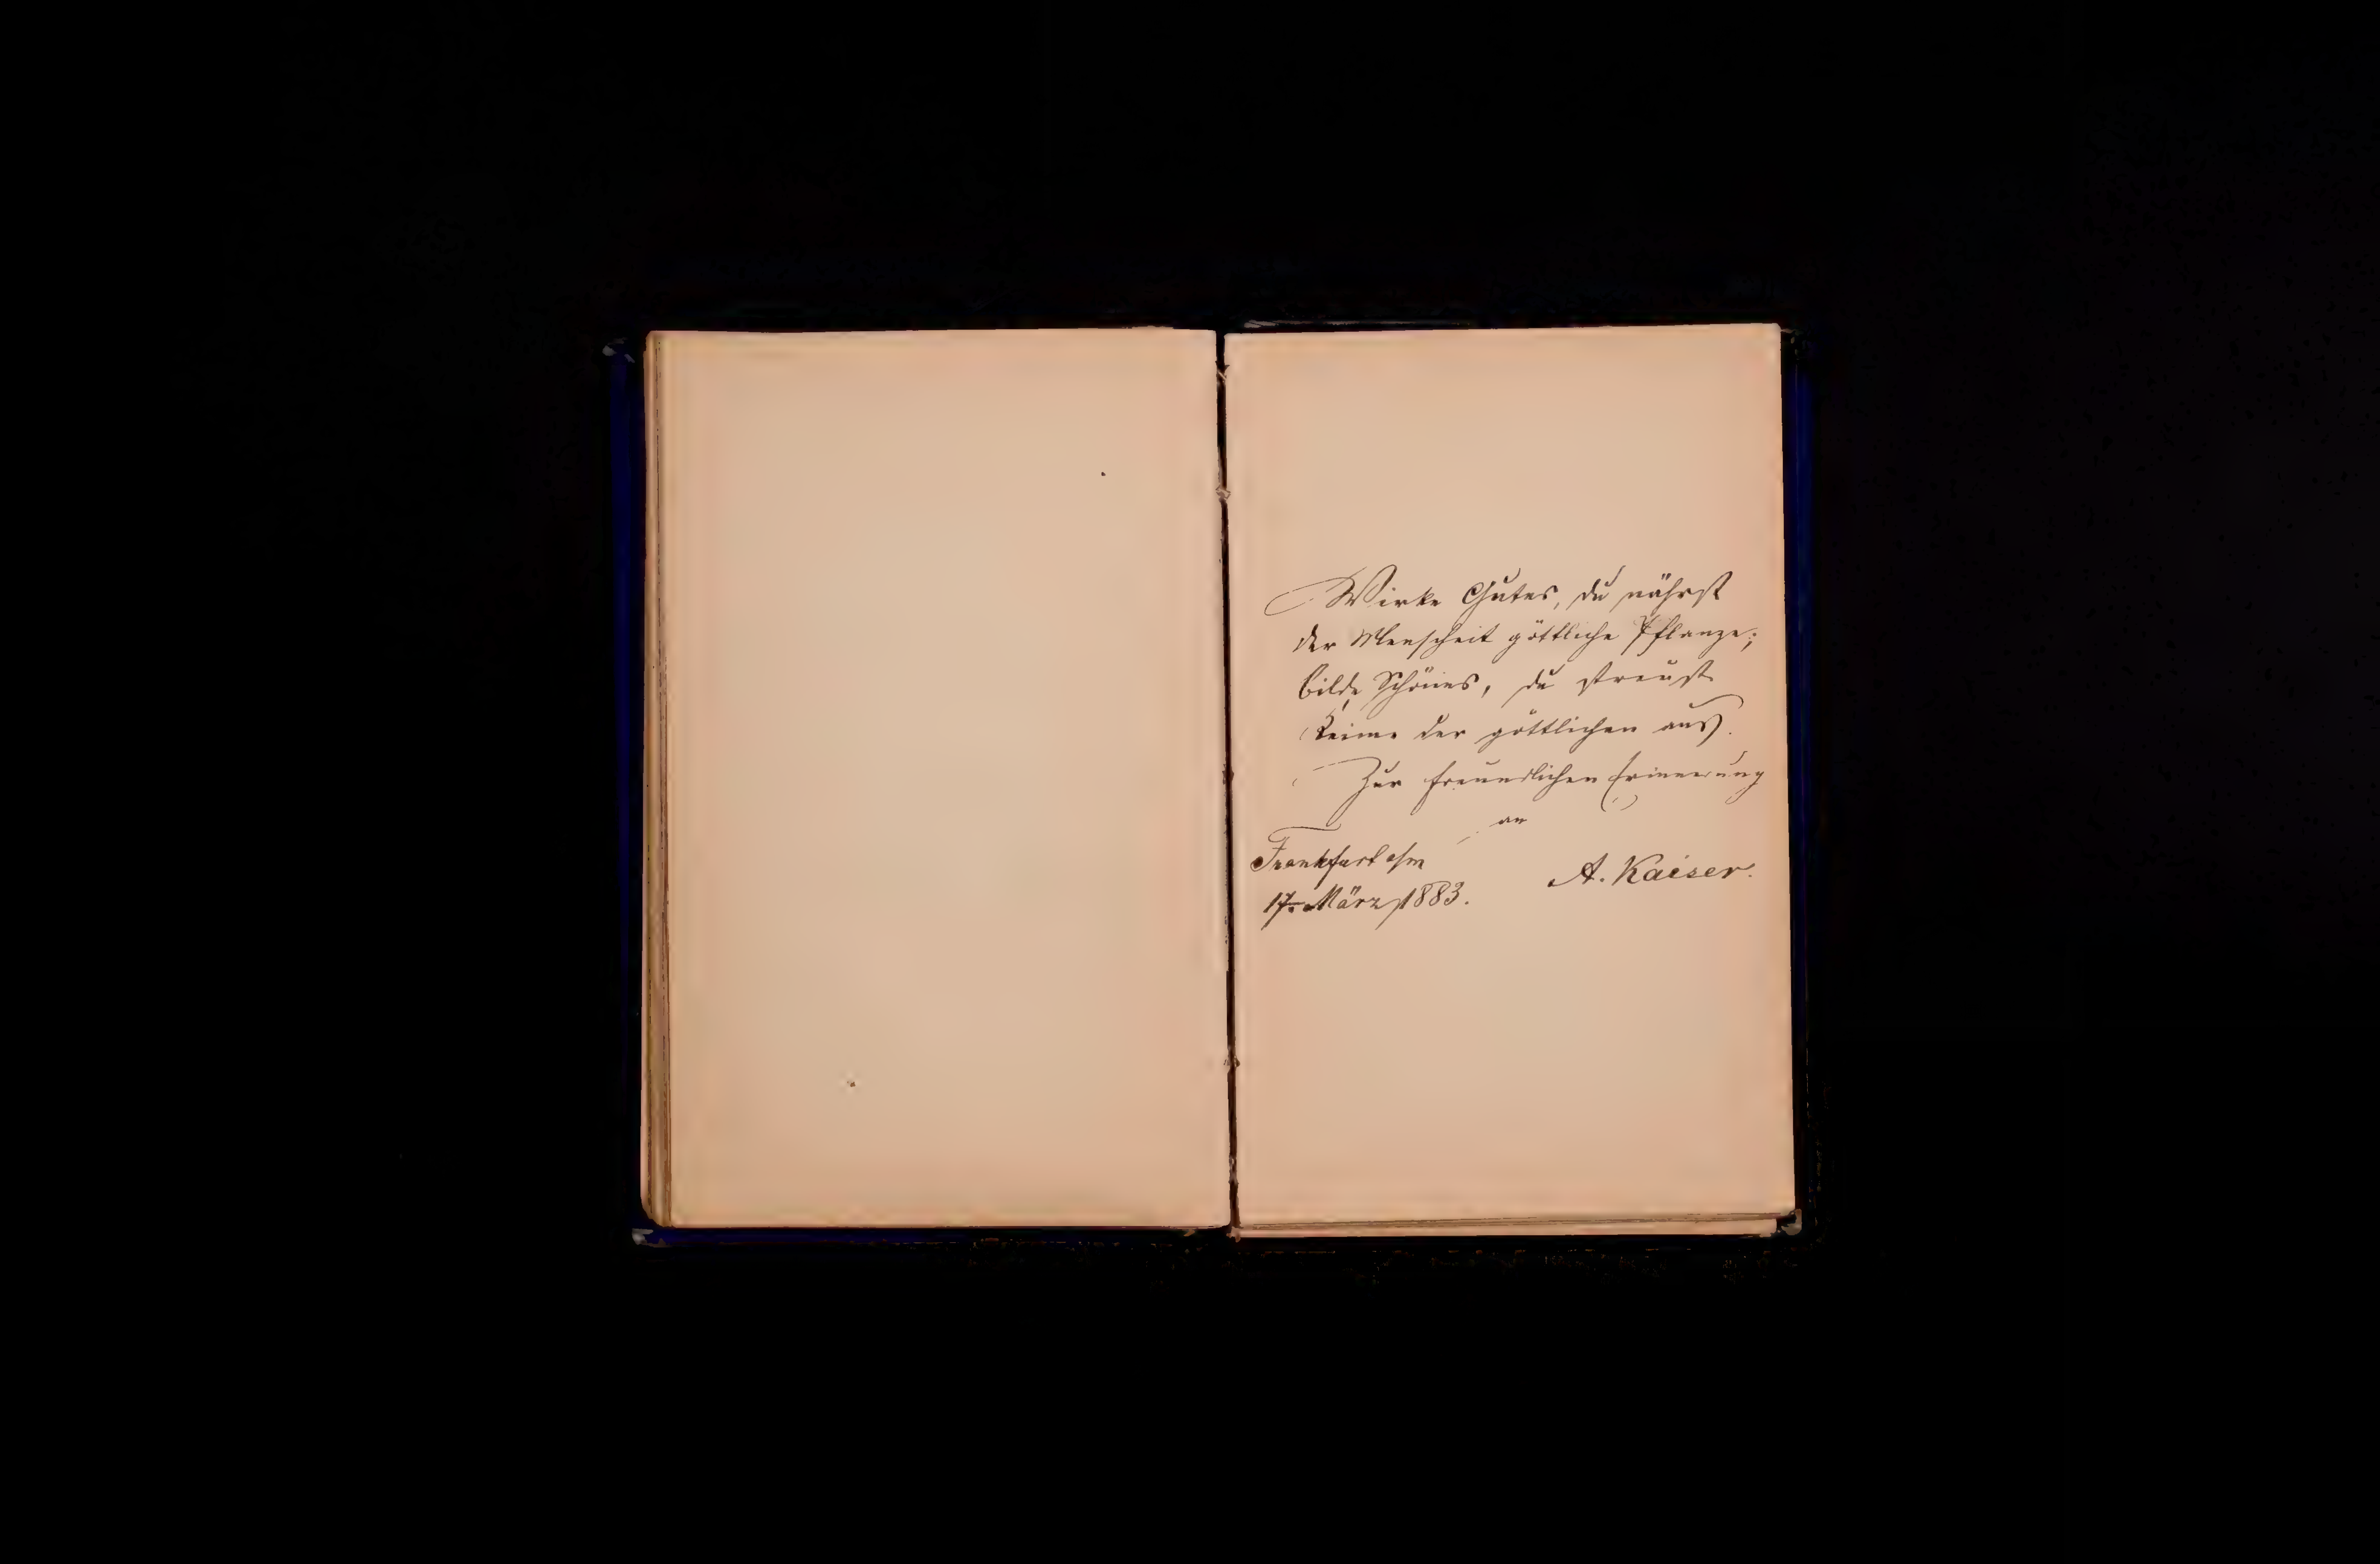 Wirke Gutes, du nährst
der Menscheit göttliche Pflanze;
bilde Schönes, du streust
Keime der göttlichen aus.
Zur freundlichen Erinnerung
an
Frankfurt a/m
A. Kaiser.
17. März 1883.